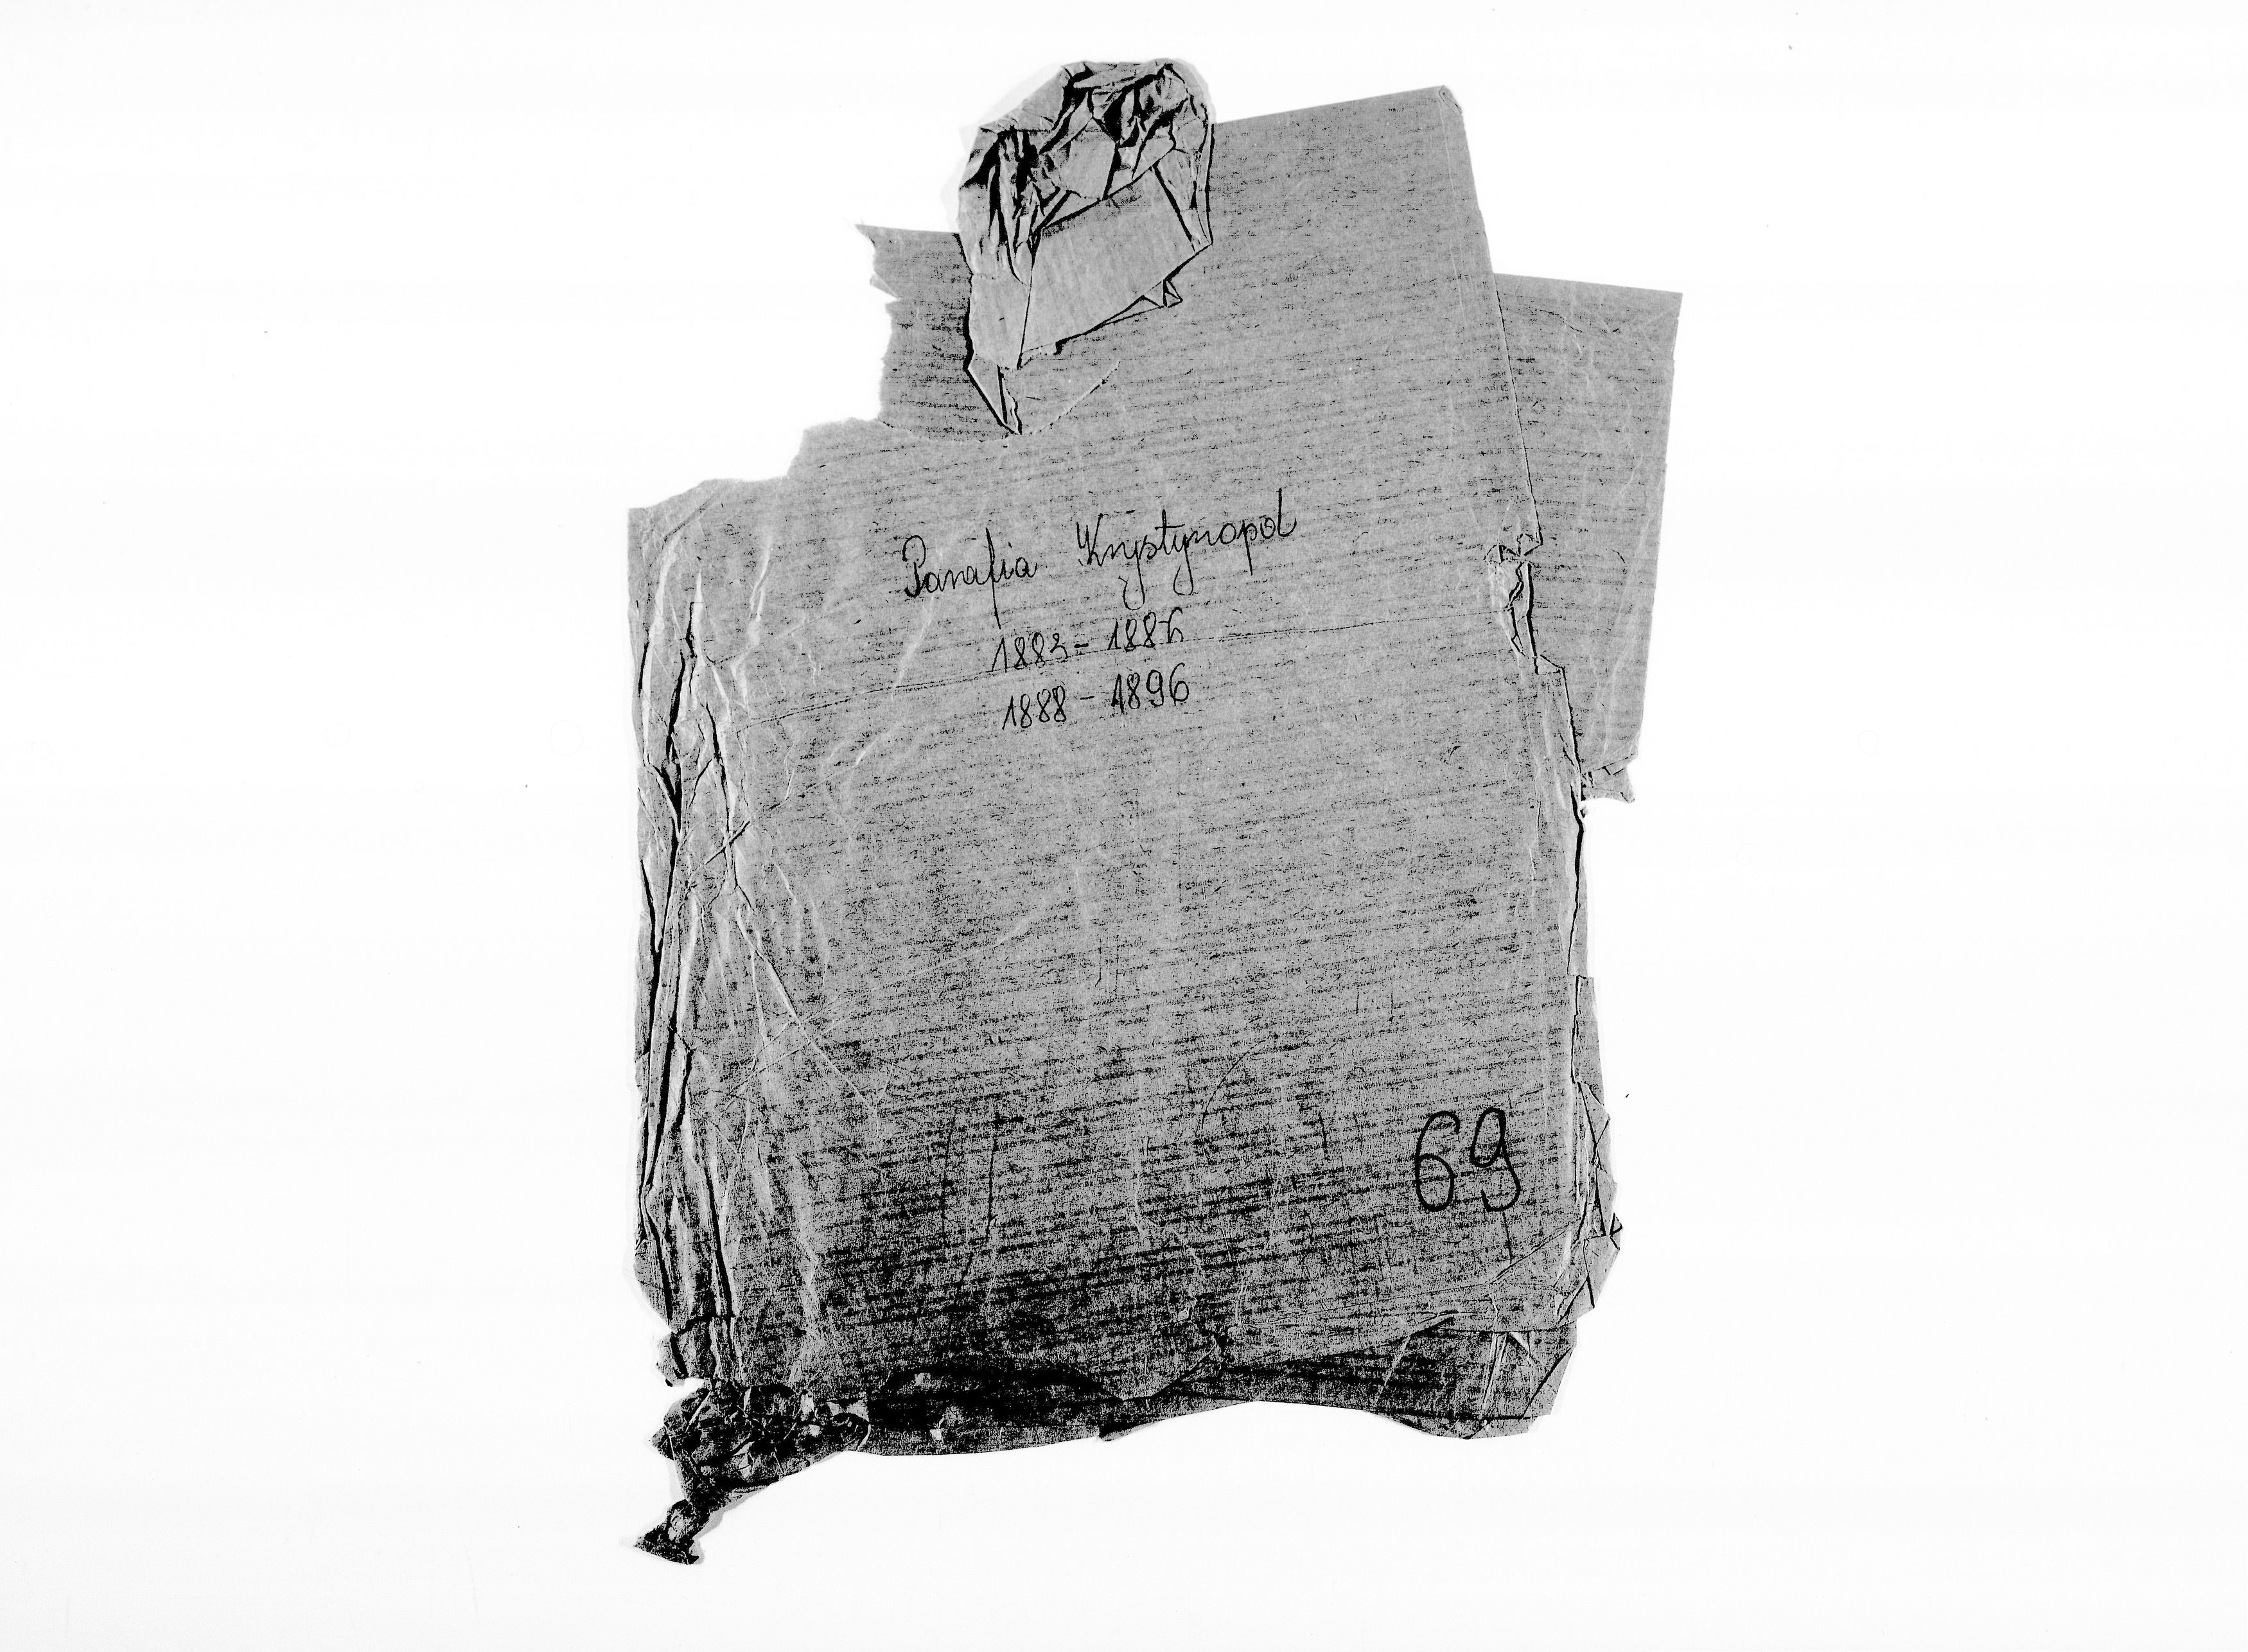 Parafia Krystynopol
1883 - 1886
1888 - 1896
69